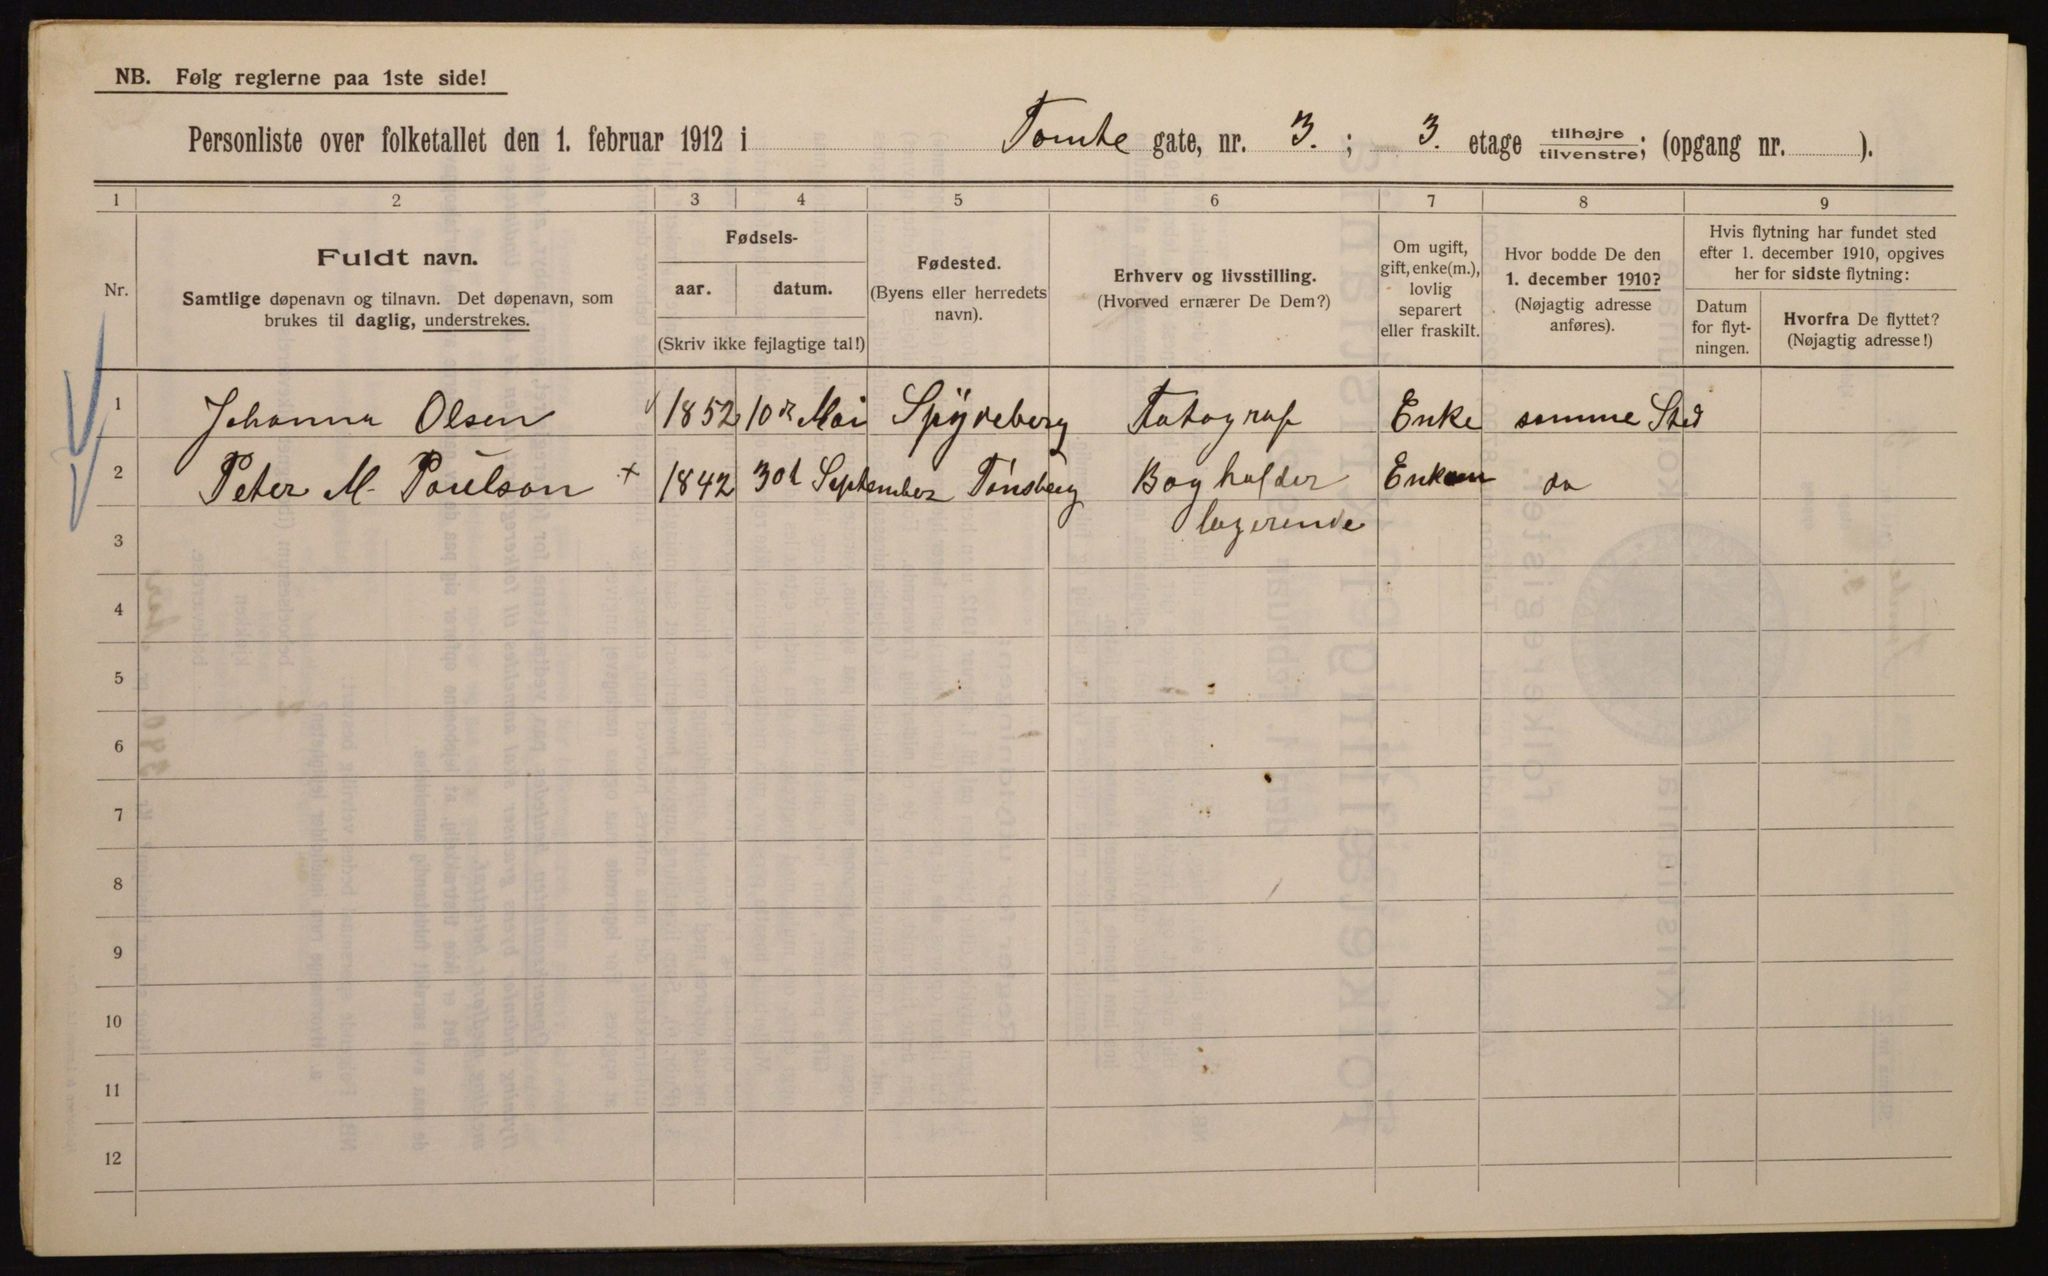 NB. Følg reglerne paa 1ste side!
Personliste over folketallet den 1. februar 1912 i Tomte gate, nr. 3. ; 3. etage tilhøjre/tilvenstre; (opgang nr. ).
1 2 3 4 5 6 7 8 9
Nr.
Fuldt navn.
Samtlige døpenavn og tilnavn. Det døpenavn, som
brukes til daglig, understrekes.
Fødsels-
aar. datum.
(Skriv ikke fejlagtige tal!)
Fødested.
(Byens eller herredets
navn).
Erhverv og livsstilling.
(Hvorved ernærer De Dem?)
Om ugift,
gift, enke(m.),
lovlig
separert
eller fraskilt.
Hvor bodde De den
1. december 1910?
(Nøjagtig adresse
anføres).
Hvis flytning har fundet sted
efter 1. december 1910, opgives
her for sidste flytning:
Datum
for flyt-
ningen.
Hvorfra De flyttet?
(Nøjagtig adresse!)
1 Johanna Olsen 1852 10de Mai Spydeberg Fotograf Enke samme Sted
2 Peter M. Poulson + 1842 30t September Tønsberg Bogholder Enkem do
logerende
3
4
5
6
7
8
9
10
11
12